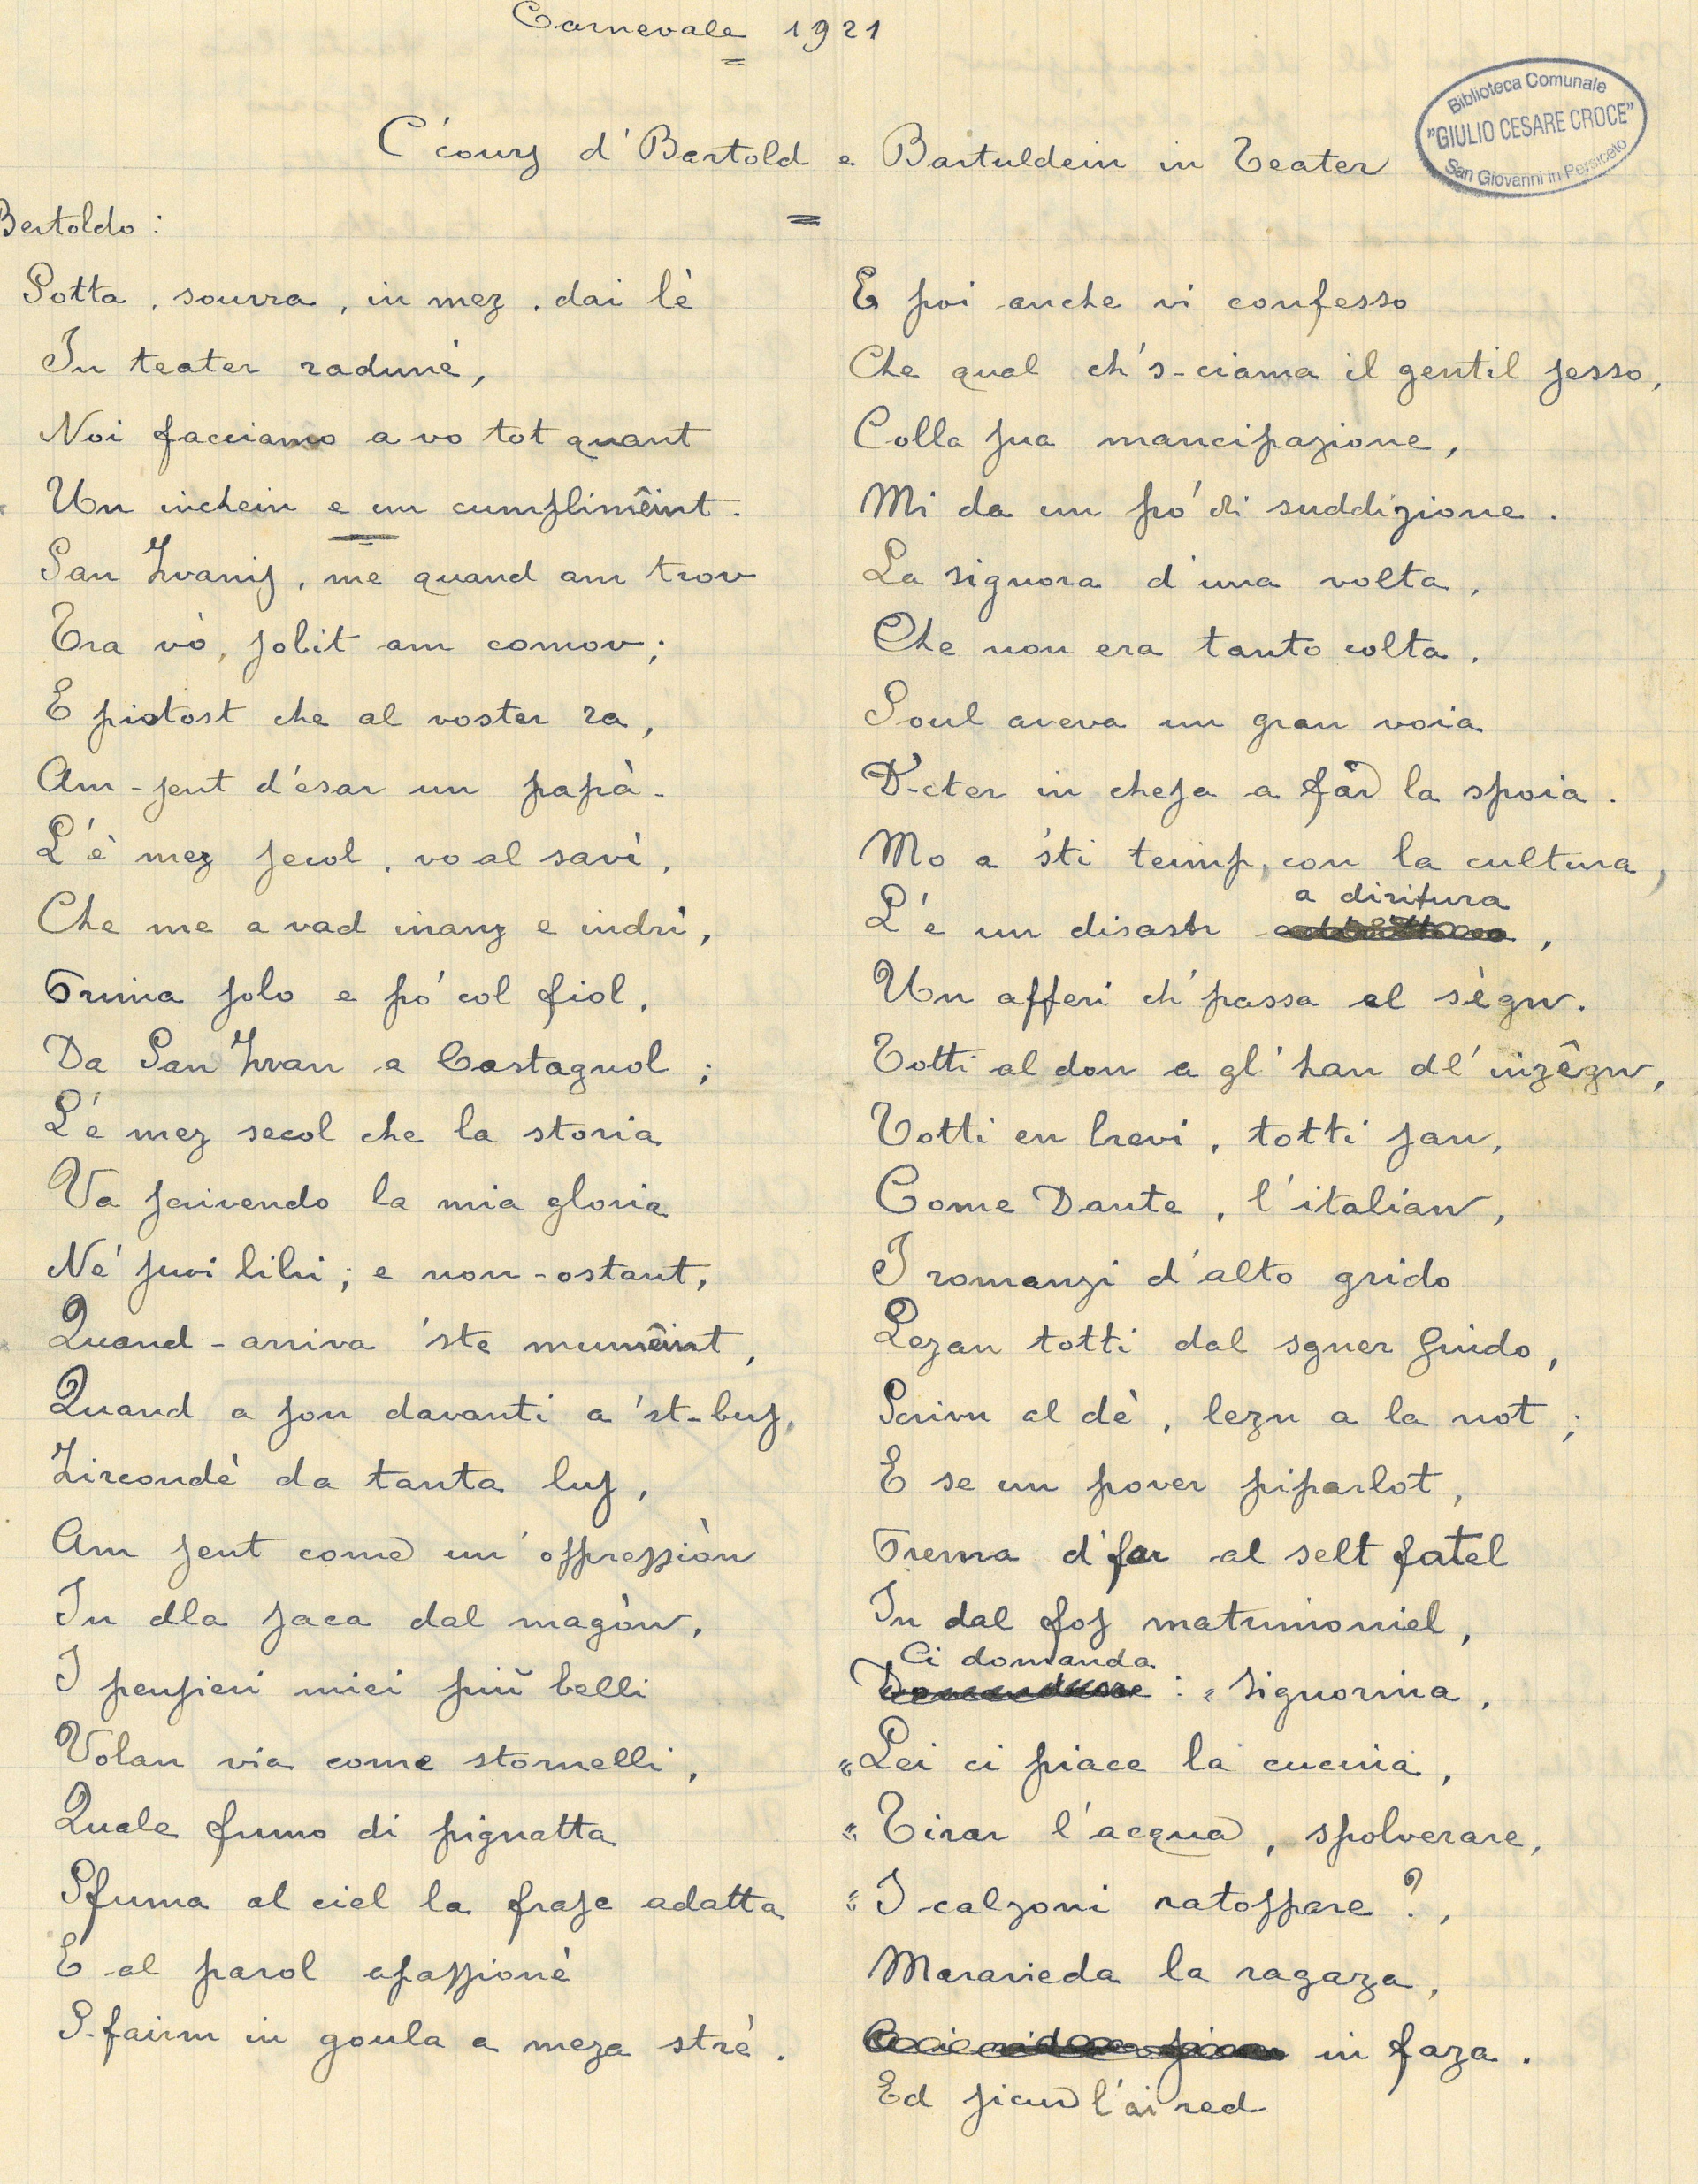 Carnevale 1921
Biblioteca Comunale
"GIULIO CESARE CROCE"
San Giovanni in Persiceto
C'cours d'Bertold e Bartuldein in Teater
Bertoldo :
Sotta, souvra, in mez, dai lè
In teater radunè,
Noi facciamo a vo tot quant
Un inchein e un cumplimêint.
San Zvanis, me quand am trov
Tra vò, sobit am comov;
E piotost che al voster ra,
Am-sent d'ésar un papà.
L'è mez secol, vo al savì,
Che me a vad inanz e indrì,
Prima solo e pò col fiol,
Da San Zvan a Castagnol ;
L'é mez secol che la storia
Va scrivendo la mia gloria
Ne' suoi libri; e non-ostant,
Quand-arriva 'ste mumêint,
Quand a son davanti a 'st-bus,
Zircondè da tanta lus,
Am sent come un'oppressiòn
In dla saca dal magòn,
I pensieri miei più belli
Volan via come stornelli,
Quale fumo di pignatta
Sfuma al ciel la frase adatta
E al parol apassionè
S-fairm in goula a meza strè.
E poi anche vi confesso
Che qual ch's-ciama il gentil sesso,
Colla sua mancipazione,
Mi da un po' di suddizione.
La signora d'una volta,
Che non era tanto colta,
Soul aveva un gran voia
D'-cter in chesa a fâr la spoia.
Mo a 'sti temp, con la cultura,
L'é un disastr a diritura,
Un afferi ch'passa al sègn.
Totti al don a gl'han dl'inzêgn,
Totti en brevi, totti san,
Come Dante, l'italian,
I romanzi d'alto grido
Lezan totti dal sgner Guido,
Scrivn al dè, lezn a la not ;
E se un pover piparlot,
Prema d'far al selt fatel
In dal fos matrimoniel,
Ci domanda : " Signorina,
" Lei ci piace la cucina,
" Tirar l'acqua, spolverare,
" I calzoni ratoppare ?,
Maravieda la ragaza,
in faza.
Ed sicur l'ai red